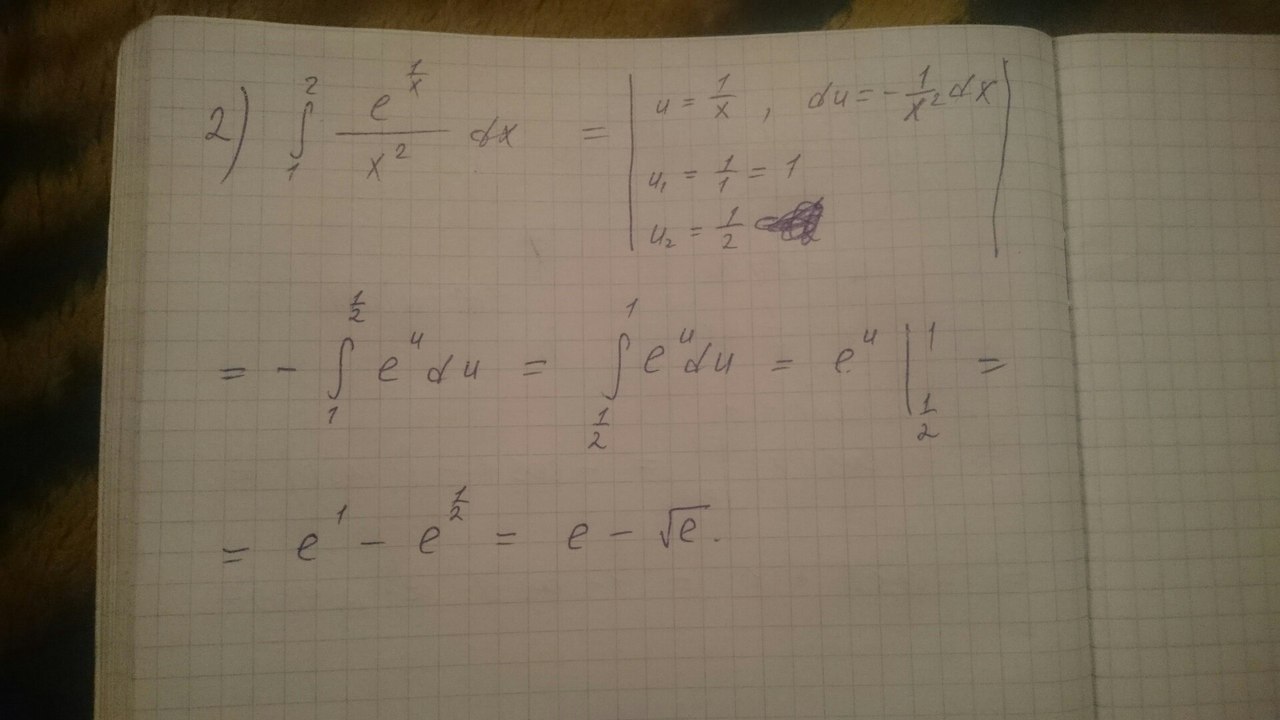 2) ∫₁² e^(1/x) / x² dx = | u = 1/x , du = -1/x² dx |
u₁ = 1/1 = 1
u₂ = 1/2
= - ∫₁^(1/2) e^u du = ∫_(1/2)^1 e^u du = e^u |_(1/2)^1 =
= e^1 - e^(1/2) = e - √e.